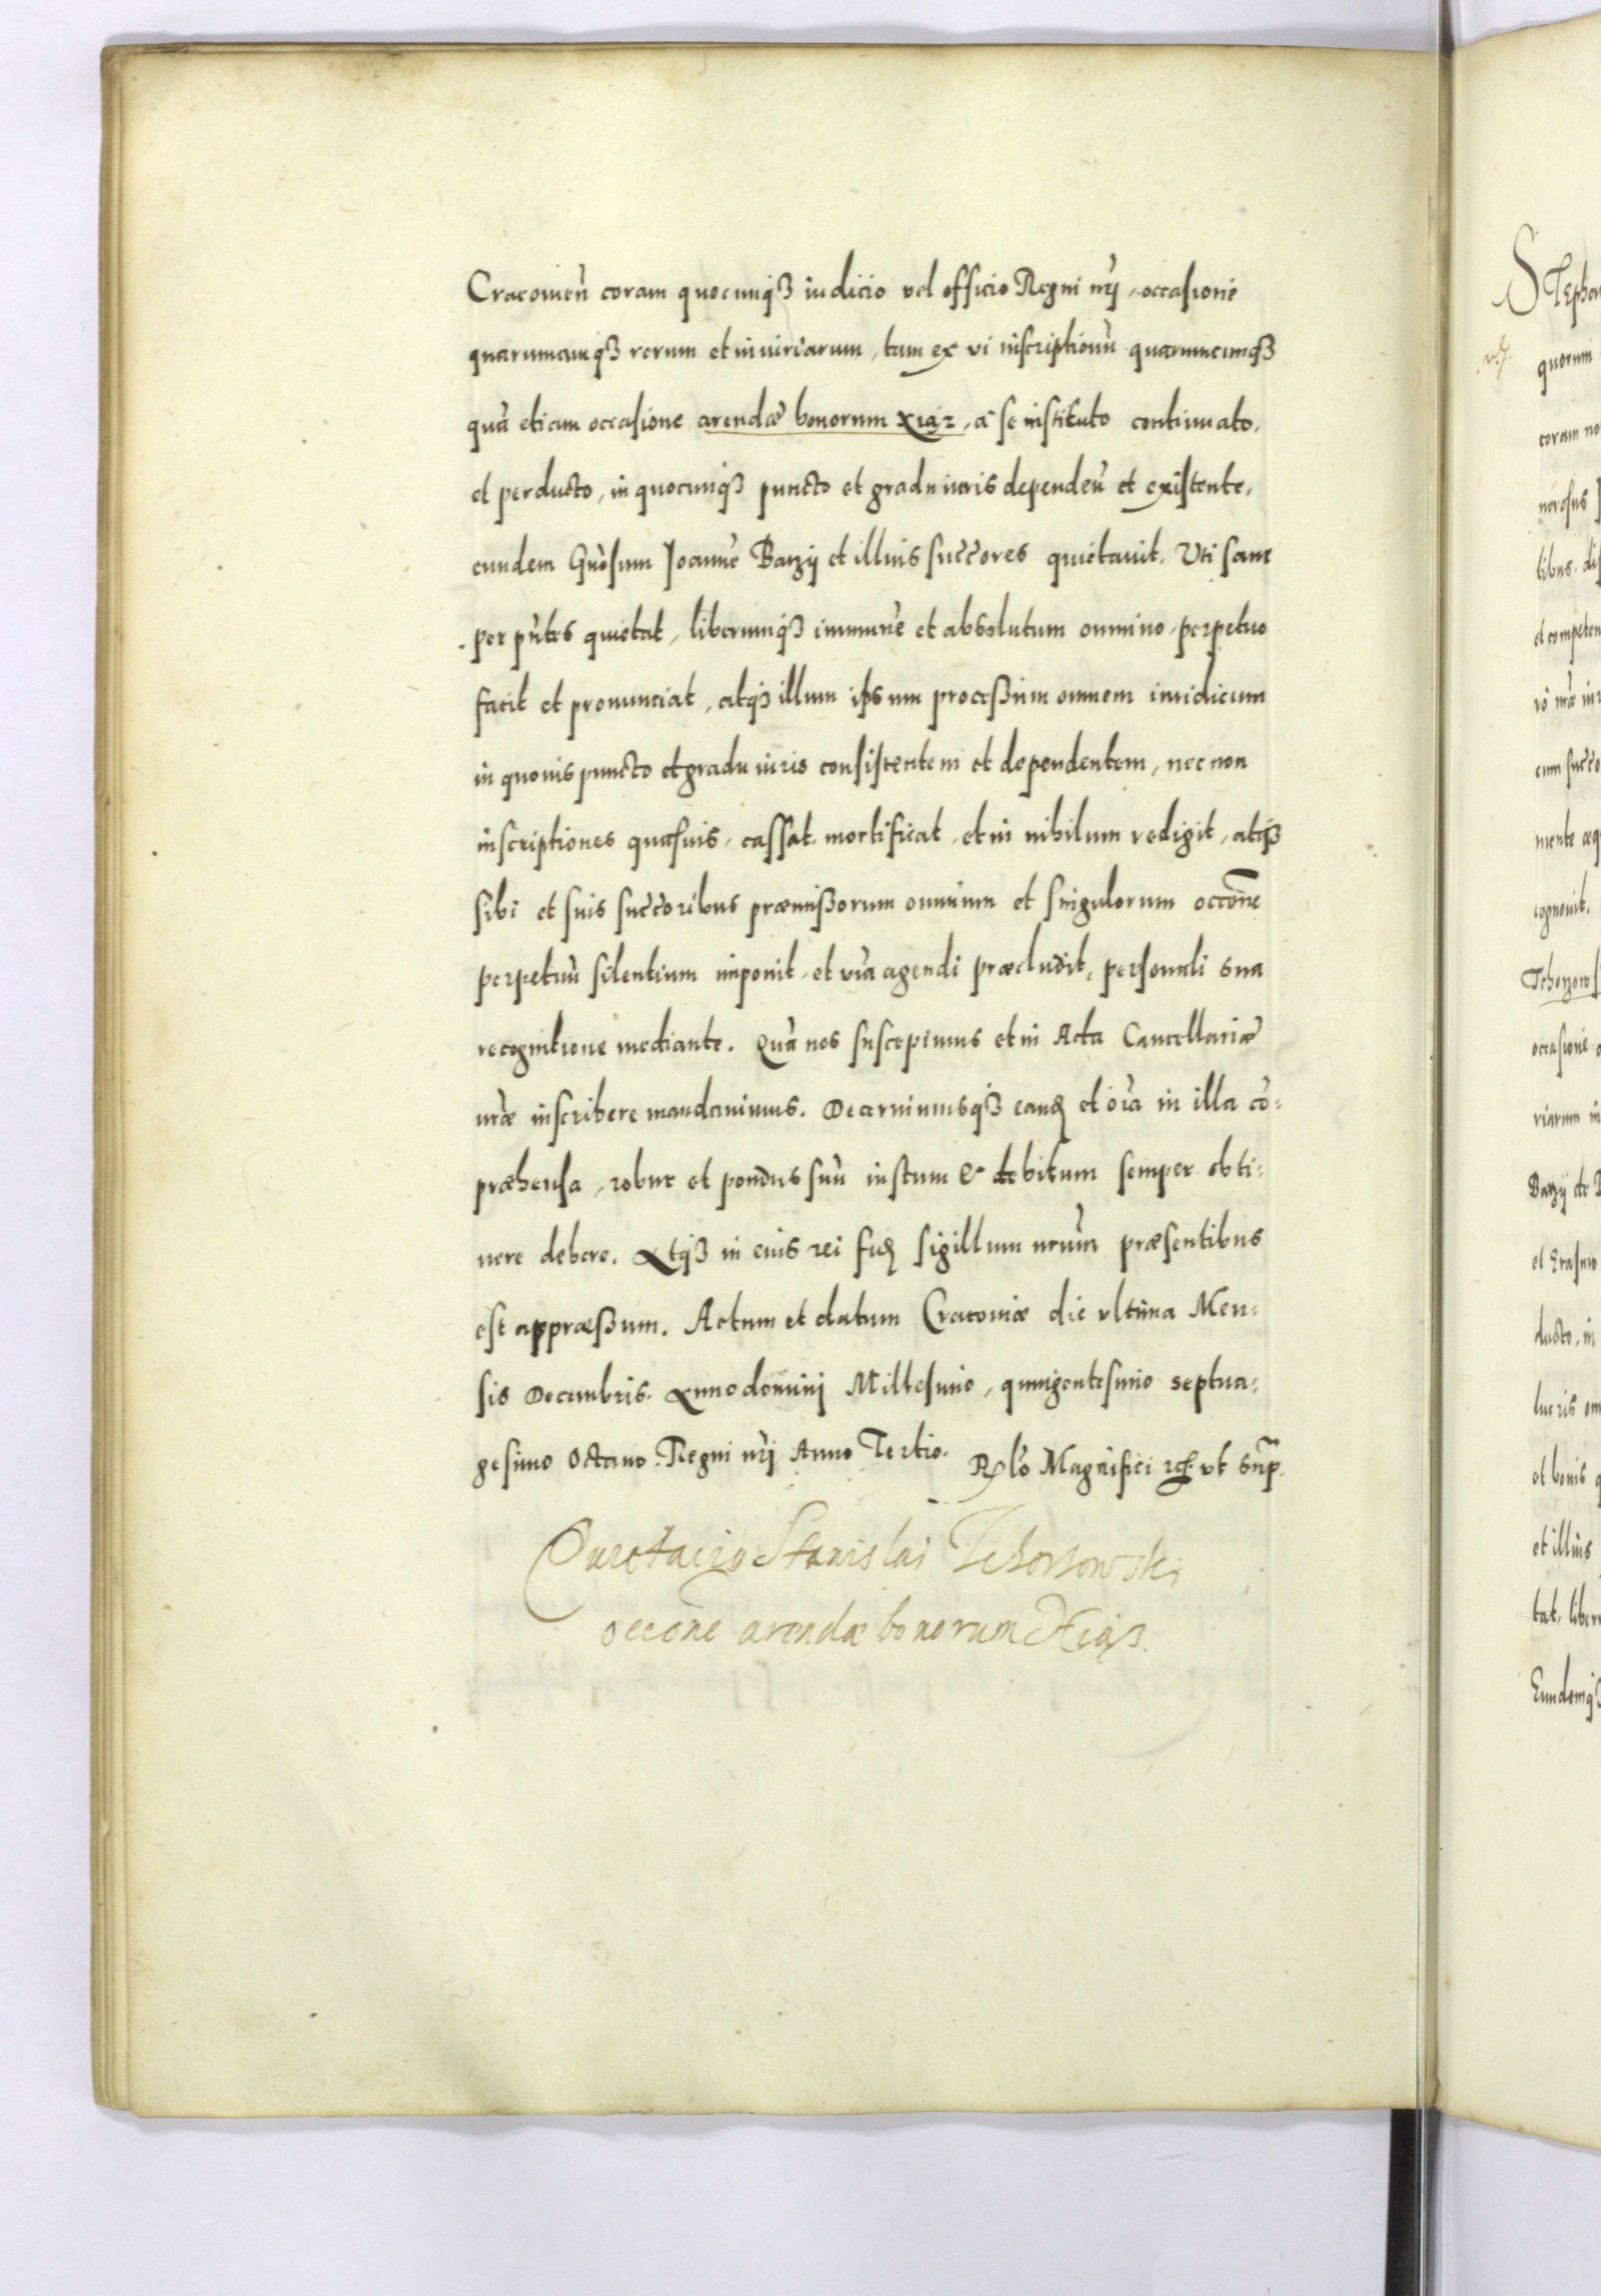 Cracovień coram quocunqȝ iudicio vel officio Regni nrĩ, occasione
quarumcunqȝ rerum et iniuriarum, tam ex vi inscriptionũ quarumcunqȝ
quã etiam occasione arendæ bonorum Xiąz, a se instituto continuato,
et perducto, in quocunqȝ puncto et gradu iuris dependeñ et existente,
eundem Gnõsum Joannẽ Barzÿ et illius succõres quietauit. Vti sane
per pñtes quietat, liberumqȝ immunẽ et absolutum omnino, perpetuo
facit et pronunciat, atqȝ illum ipsum processum omnem iuridicum
in quouis puncto et gradu iuris consistentem et dependentem, nec non
inscriptiones quasuis, cassat, mortificat, et in nihilum redigit, atqȝ
sibi et suis succõribus præmissorum omnium et singulorum occõne
perpetuũ silentium imponit, et viã agendi præcludit, personali sua
recognitione mediante. Quã nos suscepimus et in Acta Cancellariæ
nr̃æ inscribere mandauimus. Decernimusqȝ eandꝫ et oĩa in illa cõ-
præhensa, robur et pondus suũ iustum & debitum semper obti-
nere debere. Atqȝ in eius rei fidꝫ sigillum nr̃um præsentibus
est appræssum. Actum et datum Cracoviæ die vltima Men-
sis Decembris. Anno domini Millesimo, quingentesimo septua-
gesimo Octauo. Regni nrĩ Anno Tertio. Rlõ Magnifici etc. vt sup.
Quietacio Stanislai Tchorzowski
occone arendæ bonorum Xiąȝ.
Stephan
quorum
coram no
nerosus J
libus. dis
et competen
cum succo
mente æq
cognouit.
Tchorzows
occasione
riarum in
Barzÿ de
et Erasmo
ducto, in
et bonis q
et illius
tat, liber
Eundemqȝ